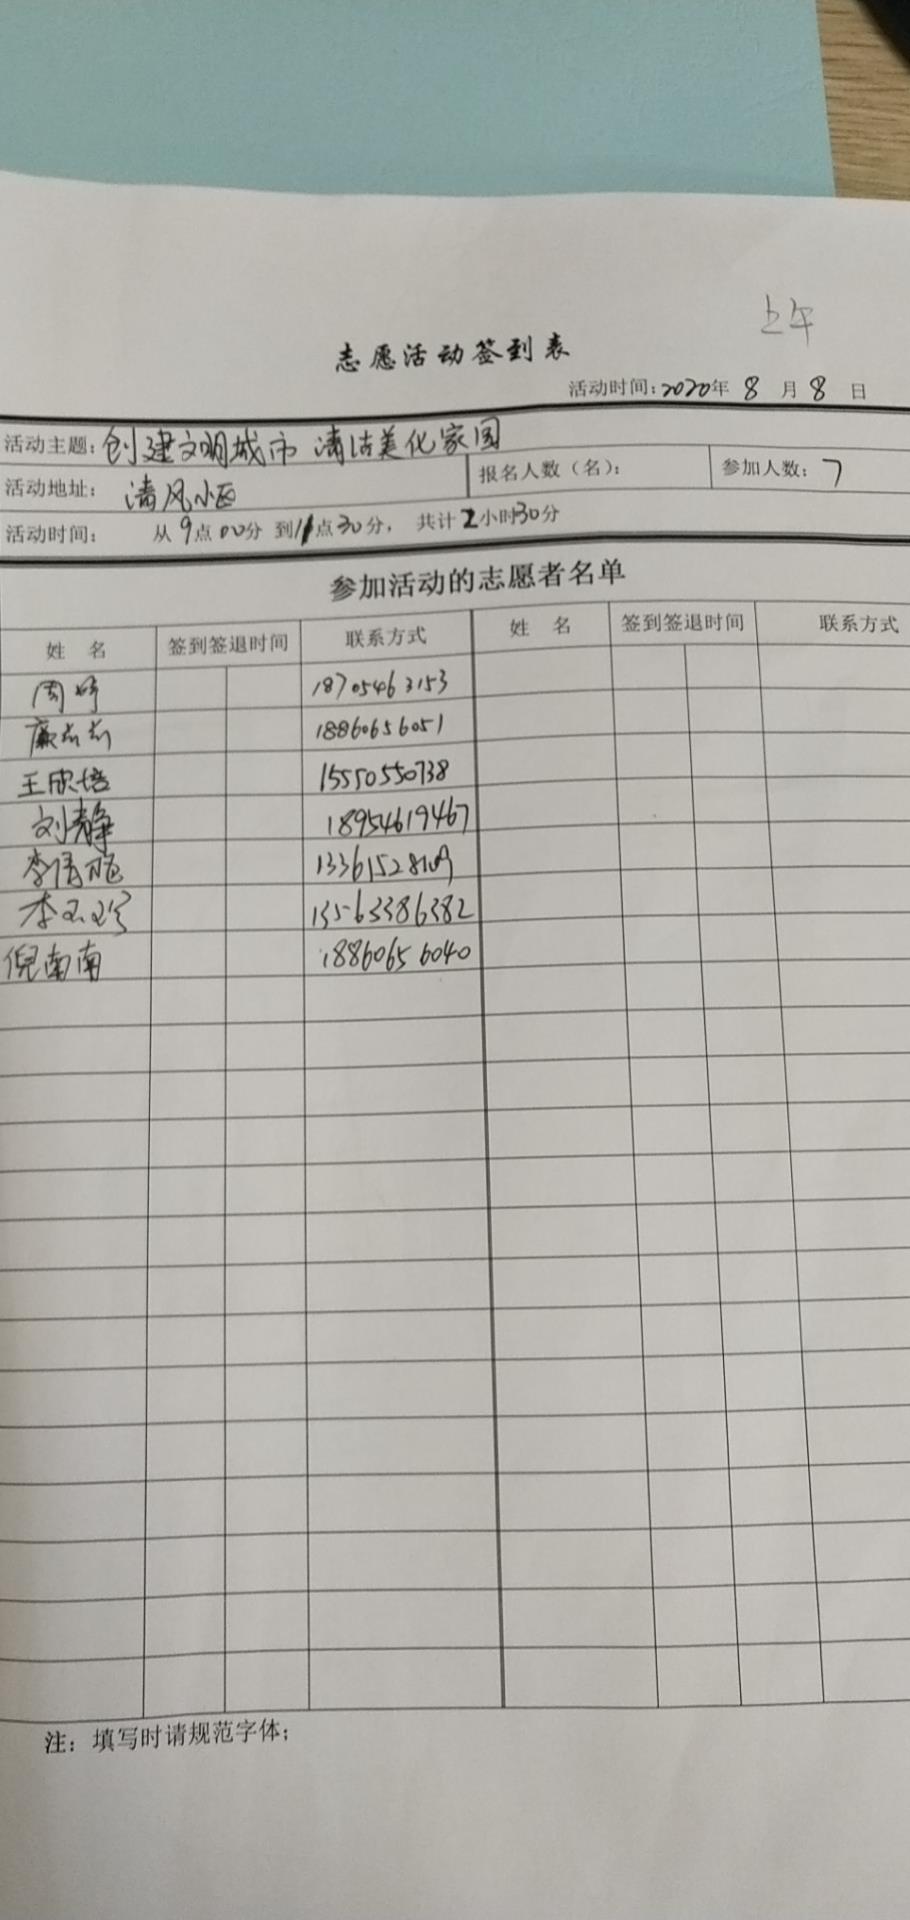 上午
志愿活动签到表
活动时间：2020年 8 月 8 日
活动主题：创建文明城市 清洁美化家园
活动地址： 清风小区 报名人数（名）： 参加人数：7
活动时间： 从9点00分 到11点30分， 共计2小时30分
参加活动的志愿者名单
姓 名 签到签退时间 联系方式 姓 名 签到签退时间 联系方式
周婷 18705463153
廉志志 18860656051
王欣培 15550550738
刘静 18954619467
李倩 133615281
李玉珍 13563386382
倪南南 18860656040
注：填写时请规范字体；